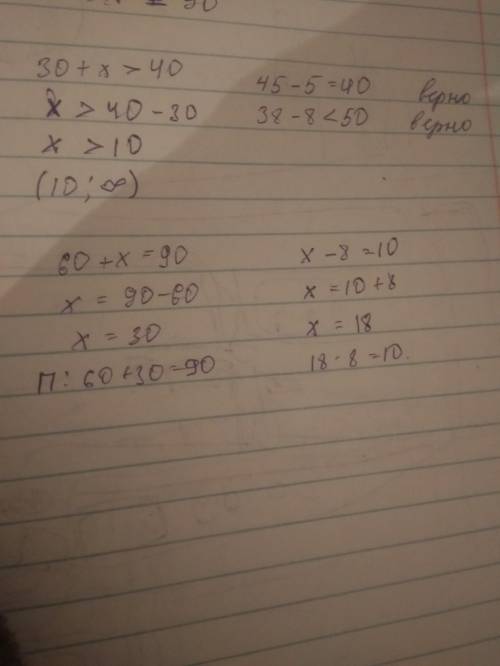 30 + x > 40
x > 40 - 30
x > 10
(10; ∞)
45 - 5 = 40 верно
38 - 8 < 50 верно
60 + x = 90
x = 90 - 60
x = 30
П: 60 + 30 = 90
x - 8 = 10
x = 10 + 8
x = 18
18 - 8 = 10.